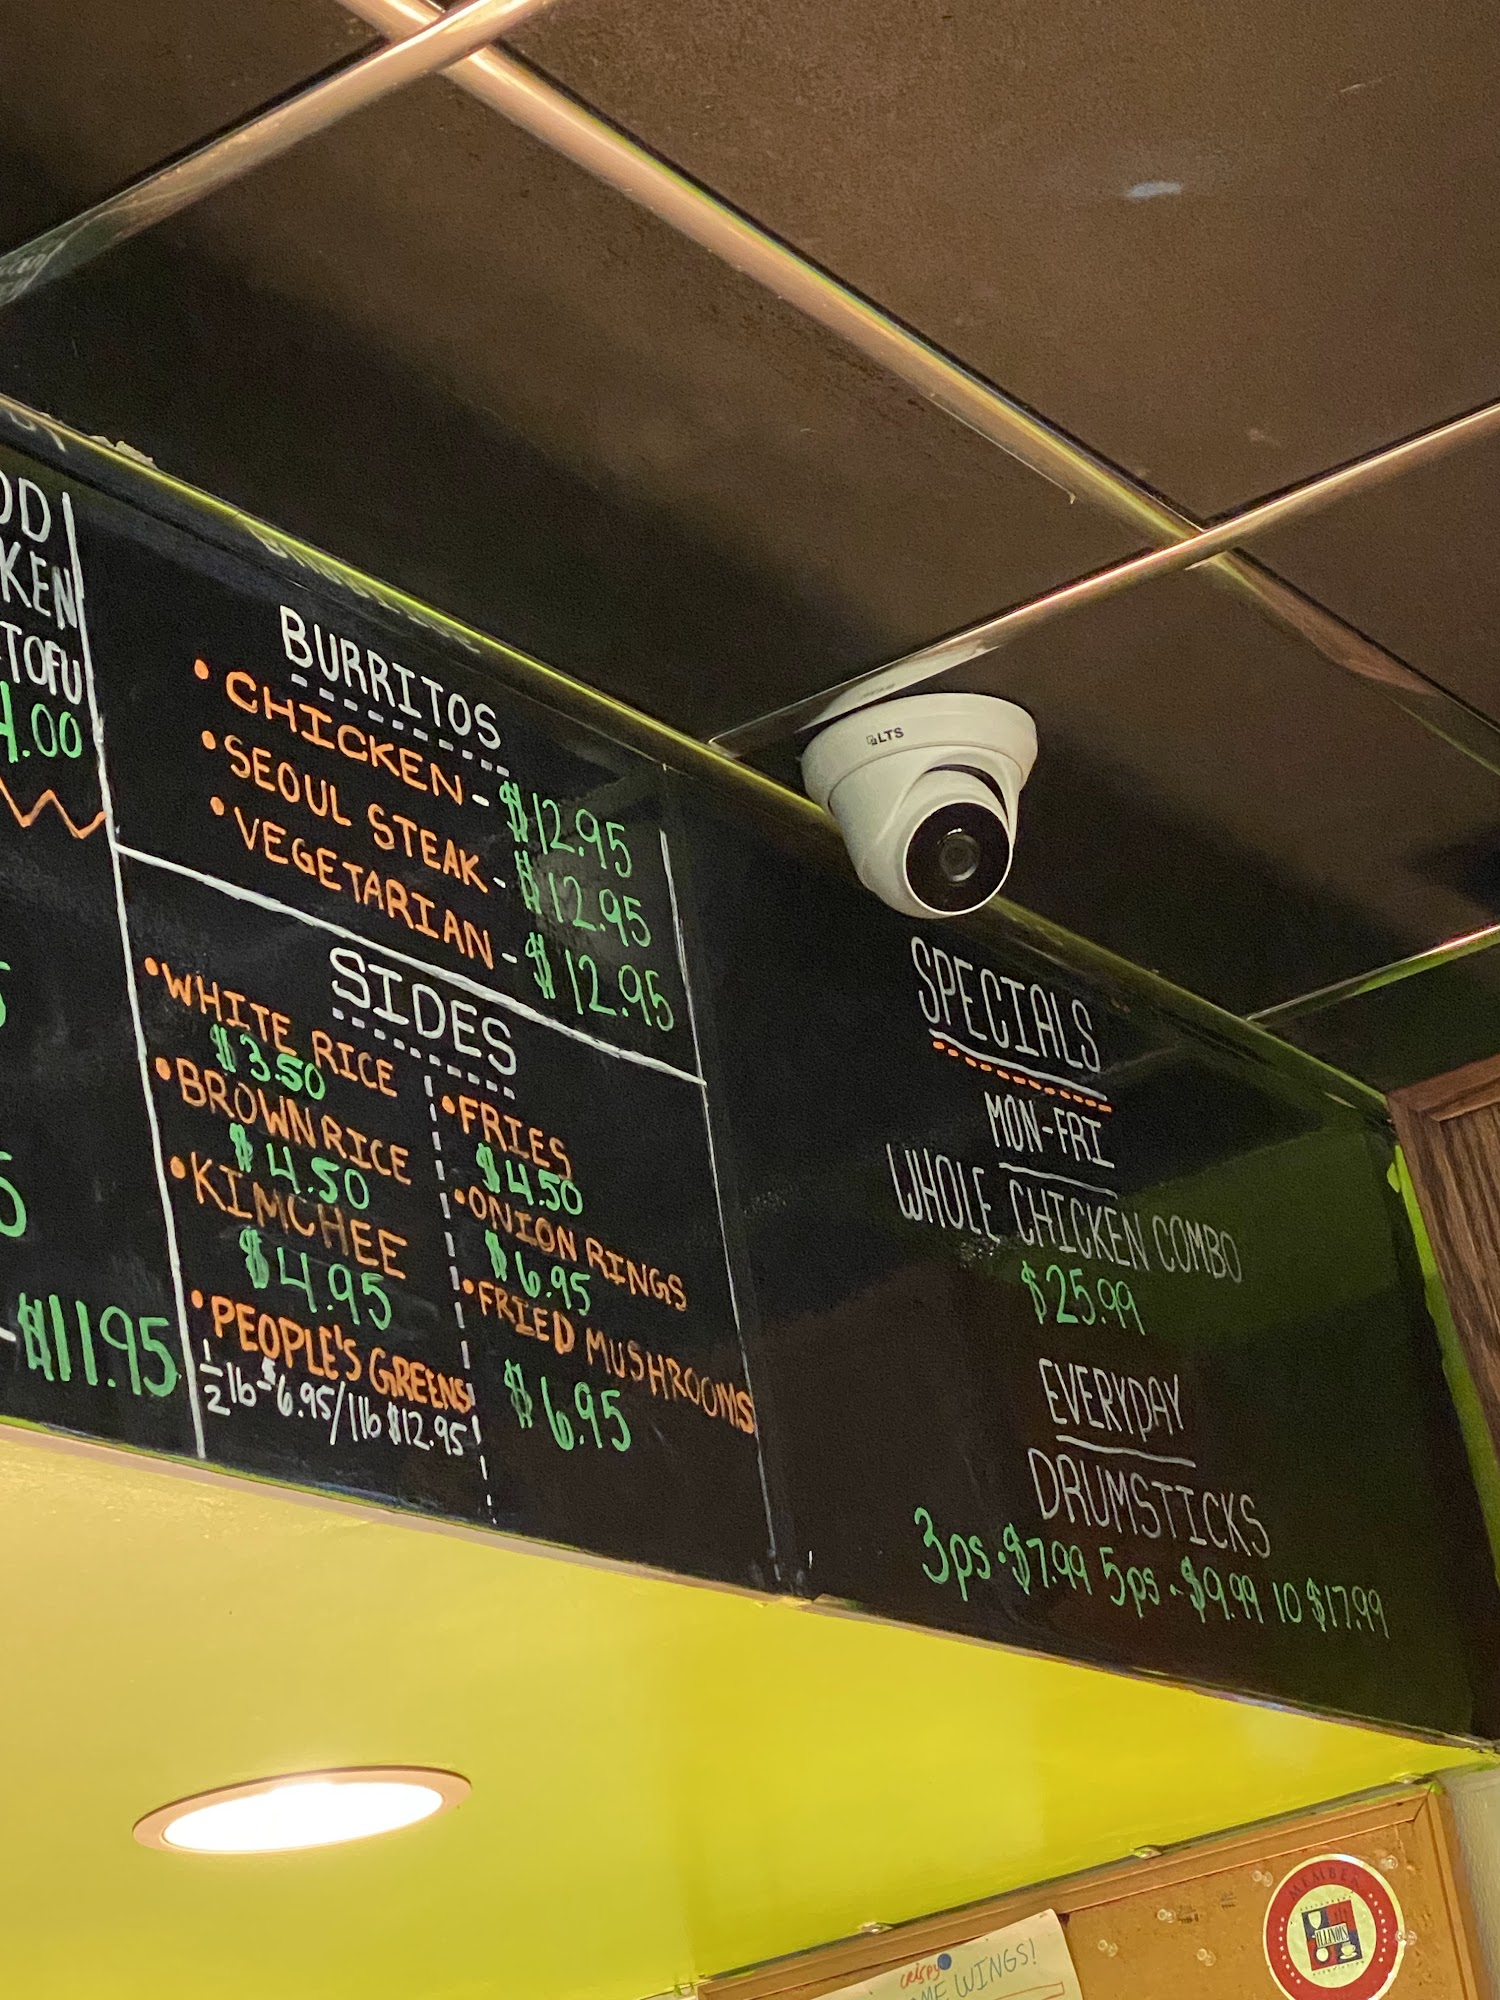 OD
KEN
TOFU
4.00
$11.95
BURRITOS
• CHICKEN - $12.95
• SEOUL STEAK - $12.95
• VEGETARIAN - $12.95
SIDES
• WHITE RICE
$3.50
• BROWN RICE
$4.50
• KIMCHEE
$4.95
• PEOPLE'S GREENS
1/2 lb - $6.95/1lb $12.95
• FRIES
$4.50
• ONION RINGS
$6.95
• FRIED MUSHROOMS
$6.95
LTS
SPECIALS
MON-FRI
WHOLE CHICKEN COMBO
$25.99
EVERYDAY
DRUMSTICKS
3ps - $7.99 5ps - $9.99 10 $17.99
CRISPY
WINGS!
MEMBER
ILLINOIS